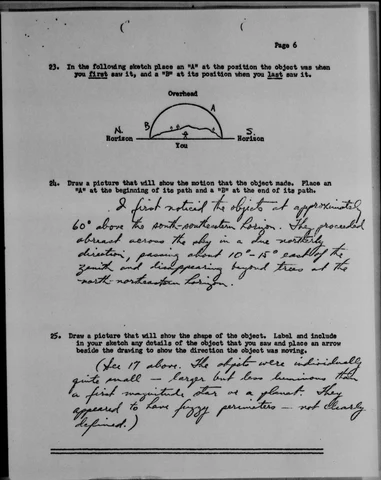 Page 6
23. In the following sketch place an "A" at the position the object was when
you first saw it, and a "B" at its position when you last saw it.
Overhead
A
N. B S.
Horizon Horizon
You
24. Draw a picture that will show the motion that the object made. Place an
"A" at the beginning of its path and a "B" at the end of its path.
I first noticed the objects at approximately
60° above the south-southeastern horizon. They proceeded
abreast across the sky in a due northerly
direction, passing about 10°-15° east of the
zenith and disappearing beyond trees at the
north-northeastern horizon.
25. Draw a picture that will show the shape of the object. Label and include
in your sketch any details of the object that you saw and place an arrow
beside the drawing to show the direction the object was moving.
(See 17 above. The objects were individually
quite small — larger but less luminous than
a first magnitude star or a planet. They
appeared to have fuzzy perimeters — not clearly
defined.)